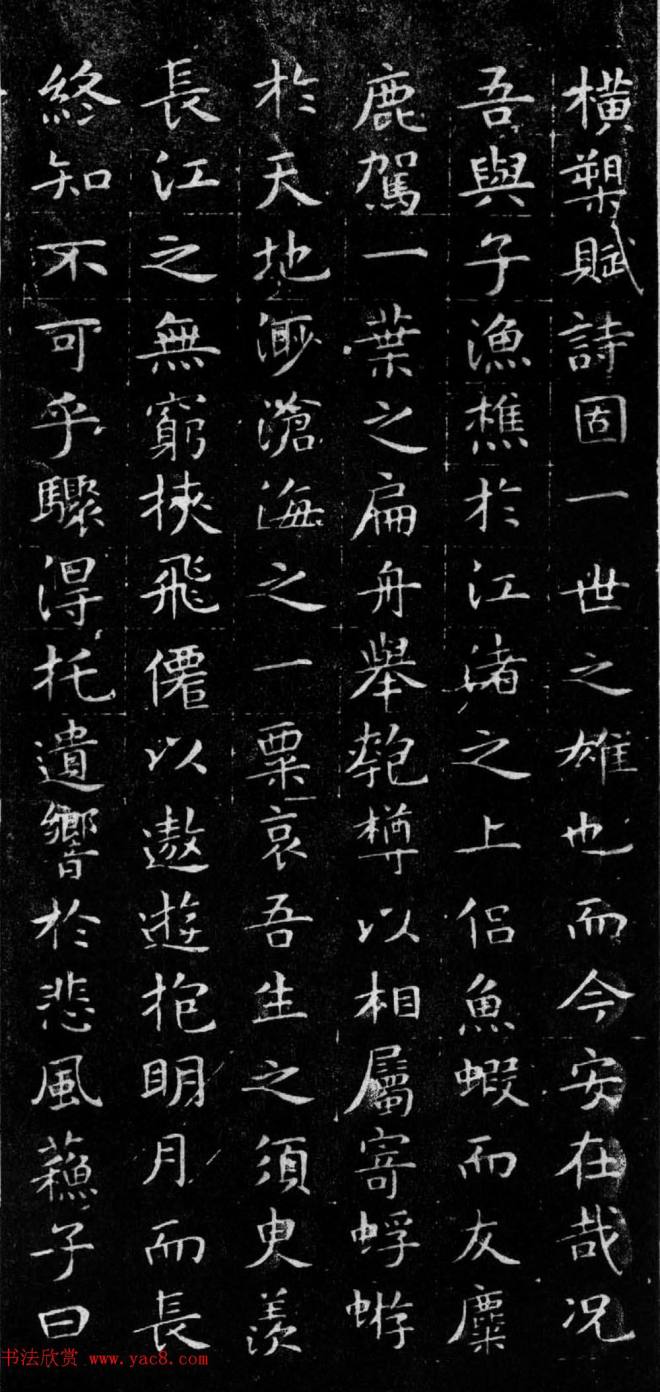 橫槊賦詩固一世之雄也而今安在哉况
吾與子漁樵於江渚之上侶魚蝦而友麋
鹿駕一葉之扁舟舉匏樽以相屬寄蜉蝣
於天地渺滄海之一粟哀吾生之須臾羨
長江之無窮挾飛僊以遨遊抱眀月而長
終知不可乎驟得托遺響於悲風蘓子曰
书法欣赏 www.yac8.com